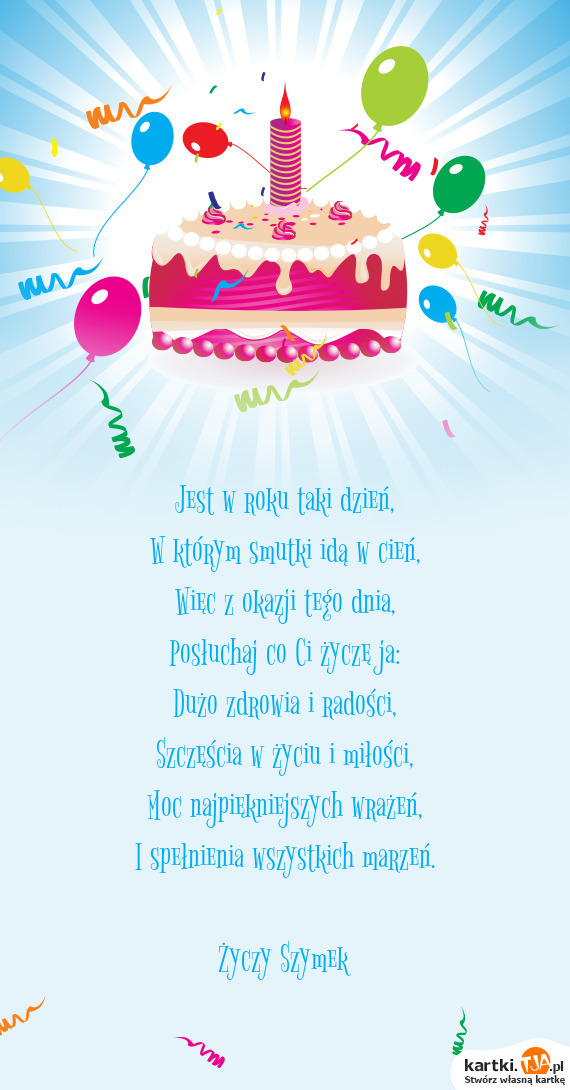 Jest w roku taki dzień,
W którym smutki idą w cień,
Więc z okazji tego dnia,
Posłuchaj co Ci życzę ja:
Dużo zdrowia i radości,
Szczęścia w życiu i miłości,
Moc najpiękniejszych wrażeń,
I spełnienia wszystkich marzeń.
Życzy Szymek
kartki.TJA.pl
Stwórz własną kartkę